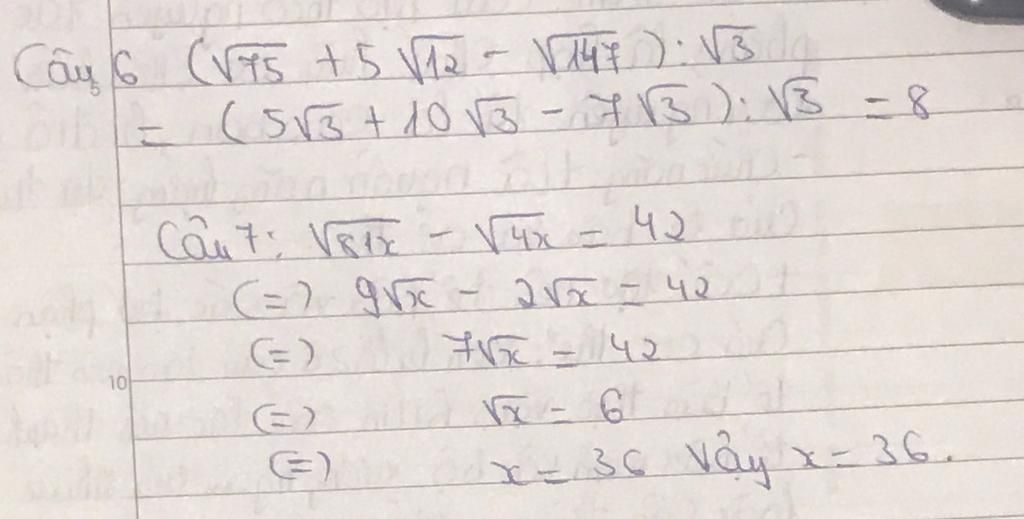 Câu 6 (√75 + 5√12 - √147) : √3
= (5√3 + 10√3 - 7√3) : √3 = 8
Câu 7: √81x - √4x = 42
(=) 9√x - 2√x = 42
(=) 7√x = 42
10
(=) √x = 6
(=) x = 36 Vậy x = 36.